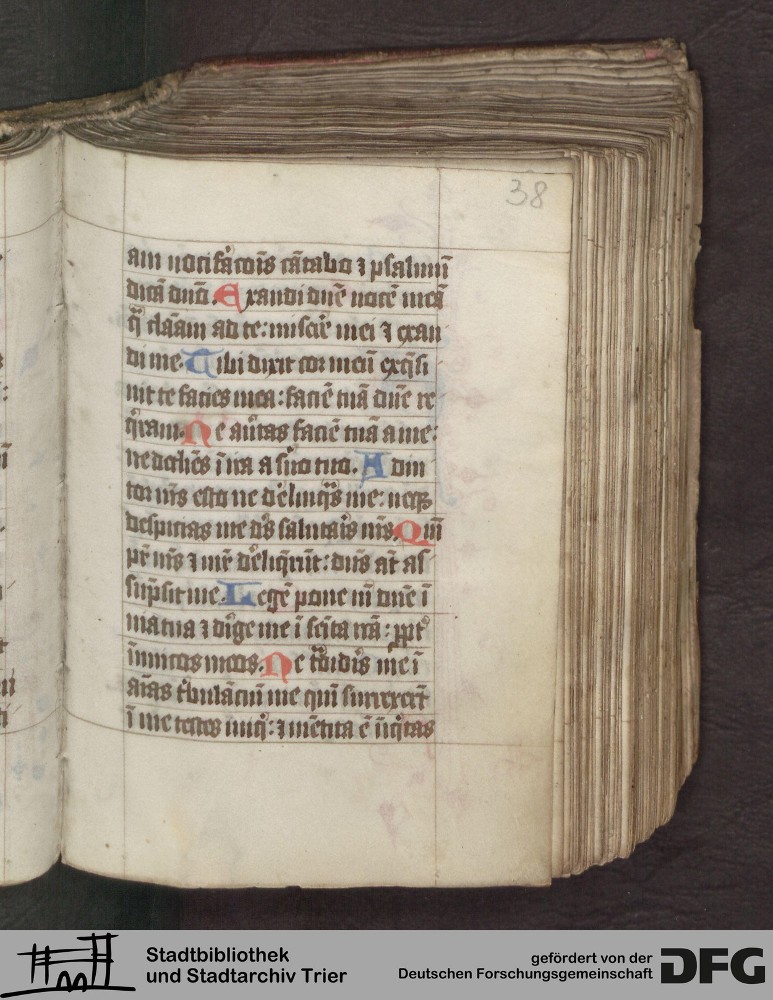 38
am vocifacōis cātabo ⁊ psalmū
dicā dnō. Exaudi dnē vocē meā
q̄ clāaui ad te: miserē mei ⁊ exau
di me. Tibi dixit cor meū exq̄si
uit te facies mea: faciē tuā dnē re
q̄ram. Ne au͛tas faciē tuā a me:
ne declīes ī ira a s͛uo tuo. Adiu
tor m̄s esto ne de͛linq̄s me: neqꝫ
despicias me dš salutar͛is m̄s. Qm̄
pr̄ m̄s ⁊ mr̄ de͛liq̄rūt: dn̄s aūt as
sūpsit me. Legē pone m̄ dnē ī
uia tua ⁊ dir͛ige me ī semīta r̄cā: ꝓpt͛
īnimicos meos. Ne t͛did͛is me ī
aīas t͛bulāciū me qm̄ surrexerūt
ī me testes iniq̄: ⁊ mētita ē īiq̄tas
Stadtbibliothek
und Stadtarchiv Trier
gefördert von der
Deutschen Forschungsgemeinschaft
DFG